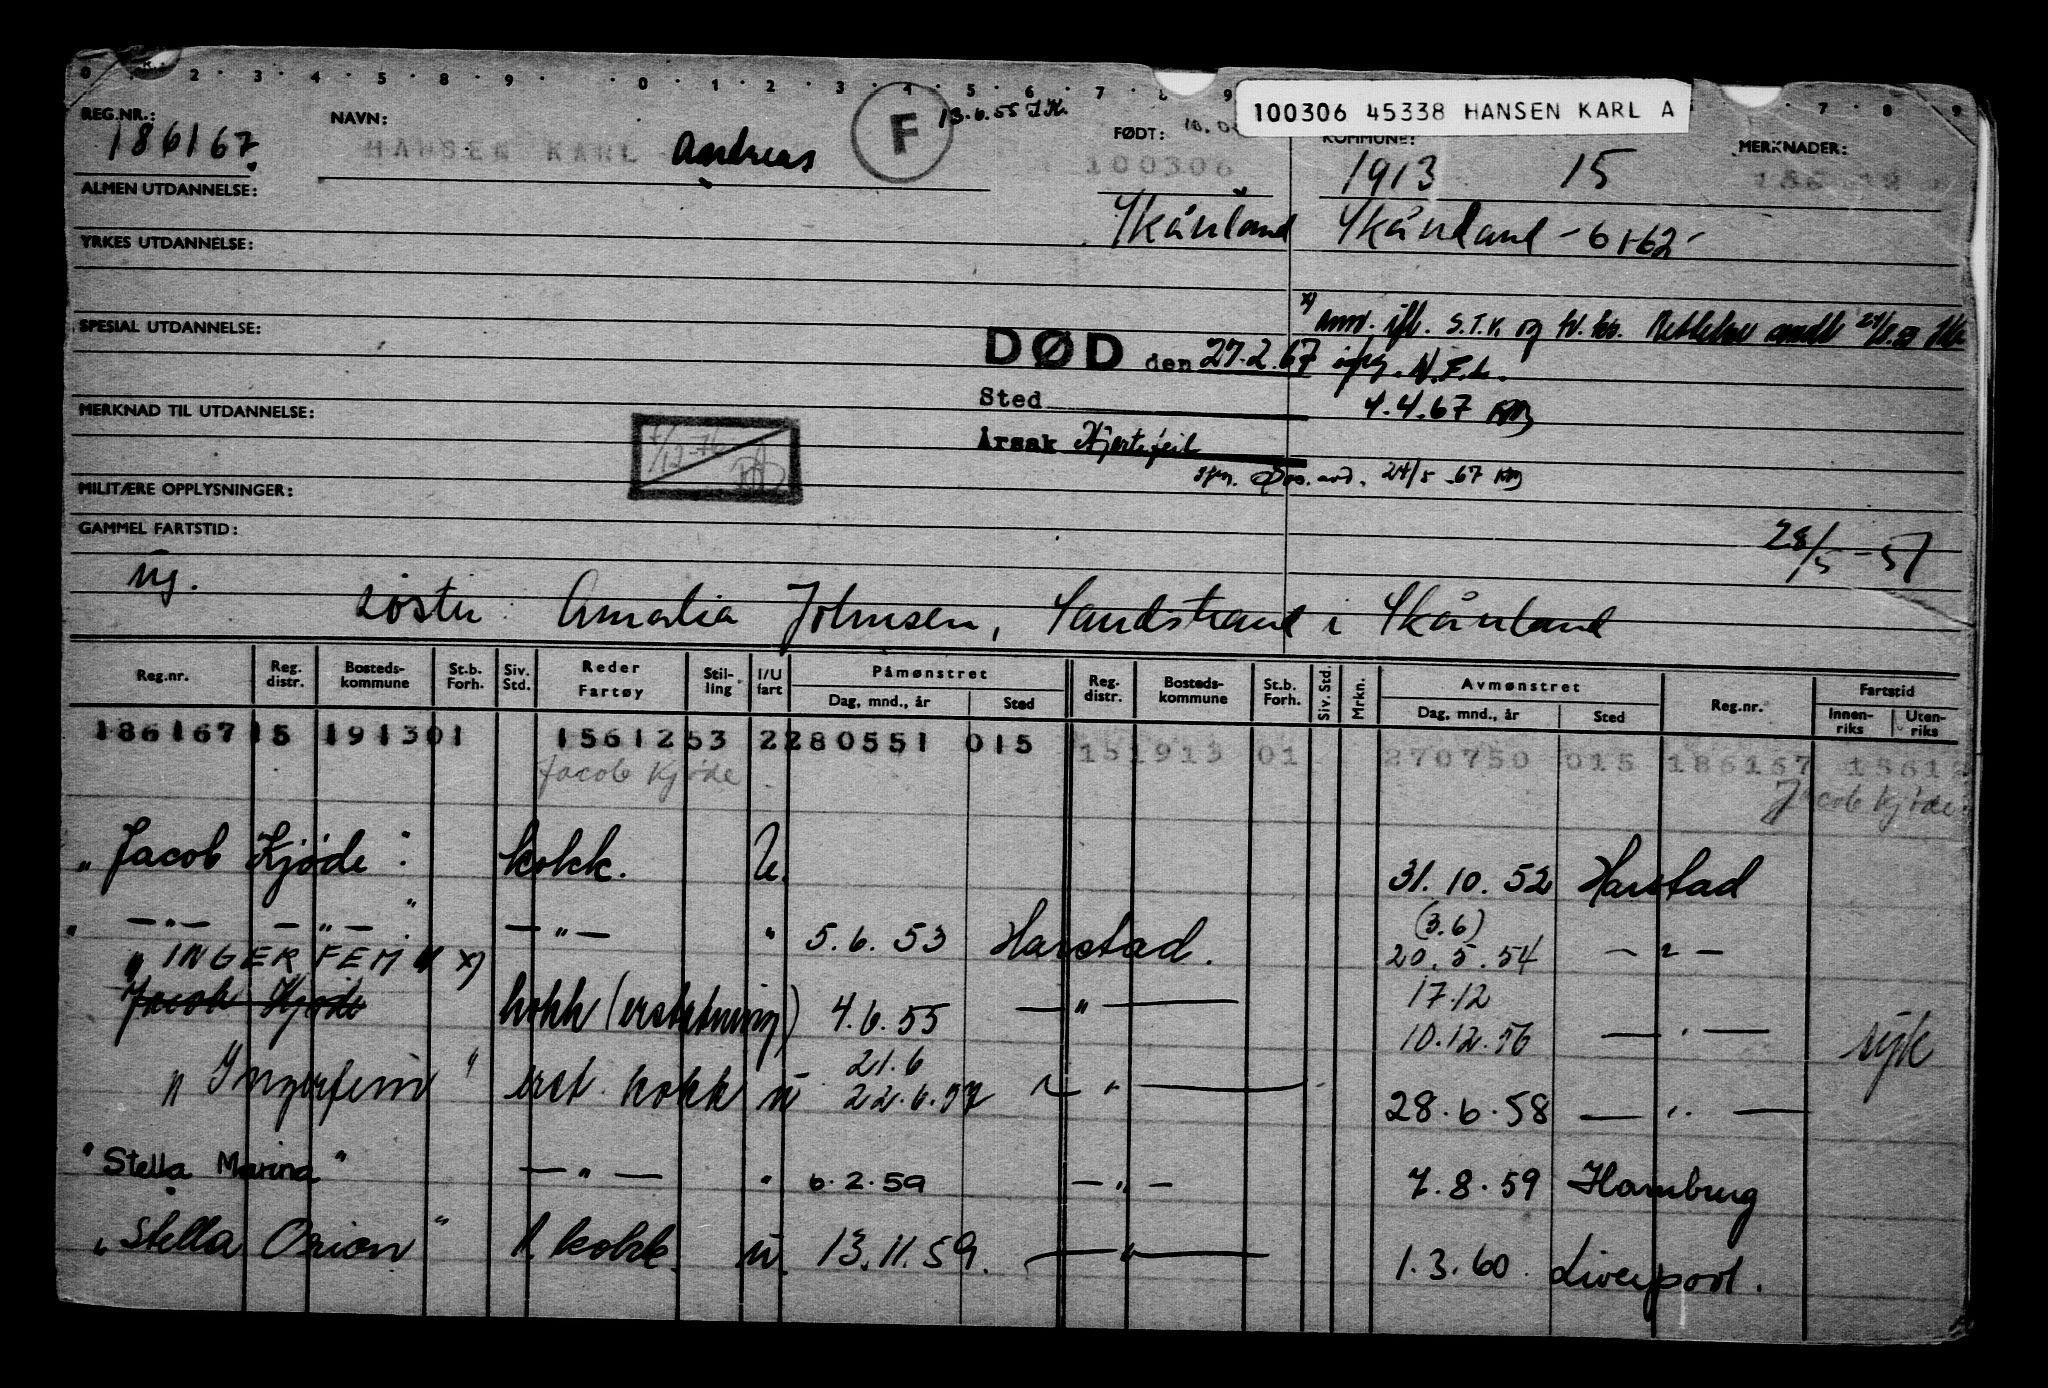 100306 45338 HANSEN KARL A
REG.NR.: 186167.
NAVN: HANSEN KARL Andreas
F 13.6.55 I.K.
FØDT: 100306
KOMMUNE: 1913 15
MERKNADER:
ALMEN UTDANNELSE:
Skånland Skånland -61-62-
YRKES UTDANNELSE:
SPESIAL UTDANNELSE:
x)
DØD den 27.2.67
4.4.67
Sted
MERKNAD TIL UTDANNELSE:
Årsak Hjertefeil
24/5-67
MILITÆRE OPPLYSNINGER:
GAMMEL FARTSTID:
28/5-57
ng.
søster: Amalia Johnsen, Sandstrand i Skånland
Reg.nr. Reg. distr. Bosteds-kommune St.b. Forh. Siv. Std. Reder Fartøy Stil-ling I/U fart Påmønstret Dag, mnd., år Sted Reg. distr. Bosteds-kommune St.b. Forh. Siv. Std. Mrkn. Avmønstret Dag, mnd., år Sted Reg.nr. Fartstid Innen-riks Uten-riks
186167 15 1913 01 1561253 2 280551 015 15 1913 01 270750 015 186167 15612
Jacob Kjøde Jacob Kjøde
"Jacob Kjøde". kokk. U. 31.10.52 Harstad
" —"— —"—" —"— " 5.6.53 Harstad. (3.6) 20.5.54 —"—
"INGERFEM" x)
Jacob Kjøde kokk (erstatning) 4.6.55 —"— 17.12 10.12.56 —"— syk
"Ingerfem" erst. kokk u 21.6 22.6.57 —"— 28.6.58 —"—
"Stella Marina" —"— " 6.2.59 —"— 7.8.59 Hamburg
"Stella Orion" kokk. u. 13.11.59. —"— 1.3.60 Liverpool.